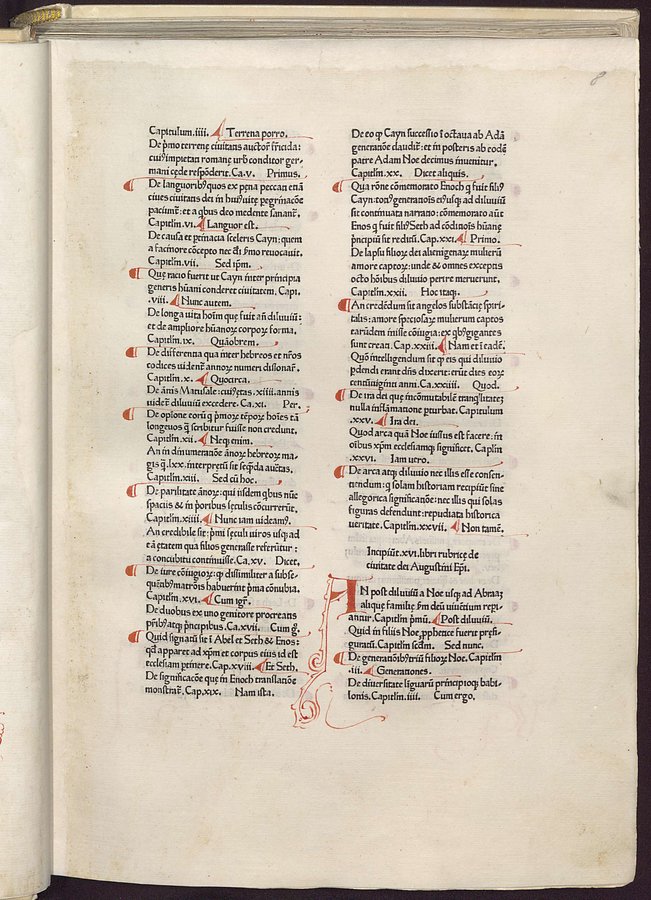 8
Capitulum.iiii. Terrena porro.
De p̄mo terrenę ciuitatis auctore fr̄icida:
cuiꝰ impietatē romanę urb̄ conditor ger-
mani cęde respōderit. Ca.v. Primus.
De languoribꝰ quos ex pena peccati etiā
ciues ciuitatis dei in huiꝰ uitę pegrinacōe
paciunt̄: et a qbus deo medente sanant̄.
Capitl̄m.vi. Languor est.
De causa et p̄tinacia sceleris Cayn: quem
a facinore cōcepto nec dei s̄mo reuocauit.
Capitl̄m.vii. Sed ip̄m.
Que racio fuerit ut Cayn inter principia
generis hūani conderet ciuitatem. Capi.
.viii. Nunc autem.
De longa uita hoīm que fuit añ diluuiū:
et de ampliore hūanoꝝ corpoꝝ forma.
Capitl̄m.ix. Quāobrem.
De differentia qua inter hebreos et n̄ros
codices uident̄ annoꝝ numeri dissonar̄.
Capitl̄m.x. Quocirca.
De ānis Matusalę: cuiꝰ ętas.xiiii.annis
uidet̄ diluuiū excedere. Ca.xi. Per.
De opīone eorū q̄ pmoꝝ tēpoꝝ hoīes tā
longeuos q̄ scribitur fuisse non credunt.
Capitl̄m.xii. Neq; enim.
An in dinumeratione ānoꝝ hebreoꝝ ma-
gis q̄.lxx.interpretū sit seq̄da auctās.
Capitl̄m.xiii. Sed cū hoc.
De parilitate ānoꝝ: qui iisdem qbus nūc
spaciis & in prioribus seculis cōcurrerūt.
Capitl̄m.xiiii. Nunc iam uideamꝰ.
An credibile sit: p̄mi seculi uiros usq; ad
eā ętatem qua filios generasse referūtur:
a concubitu continuisse. Ca.xv. Dicet.
De iure cōiugioꝝ: q̄ dissimiliter a subse-
quētibꝰ matrōis habuerint p̄ma cōnubia.
Capitl̄m.xvi. Cum igit̄.
De duobus ex uno genitore procreatis
pr̄ibꝰ atq; p̄ncipibus. Ca.xvii. Cum ḡ.
Quid signatū sit i Abel et Seth & Enos:
qd̄ appareat ad xp̄m et corpus eius id est
ecclesiam p̄tinere. Cap.xviii. Et Seth.
De significacōe que in Enoch translatōe
monstrat̄. Cap.xix. Nam ista.
De eo qp̄ Cayn successio i octaua ab Adā
generatōe claudit̄: et in posteris ab eodē
patre Adam Noe decimus inuenitur.
Capitl̄m.xx. Dicet aliquis.
Qua rōne cōmemorato Enoch q̄ fuit filiꝰ
Cayn: totiꝰ generatōis eiꝰ usq; ad diluuiū
sit continuata narratio: cōmemorato aūt
Enos q̄ fuit filiꝰ Seth ad cōditōis hūanę
p̄ncipiū sit reditū. Cap.xxi. Primo.
De lapsu filioꝝ dei alienigenaꝝ mulierū
amore captoꝝ: unde & omnes exceptis
octo hōibus diluuio perire meruerunt.
Capitl̄m.xxii. Hoc itaq;.
An credēdum sit angelos substācię spiri-
talis: amore speciosaꝝ mulierum captos
earūdem inisse cōiugia: ex qbꝰ gigantes
sunt creati. Cap.xxiii. Nam et i eadē.
Quō intelligendum sit qp̄ eis qui diluuio
pdendi erant dn̄s dixerit: erūt dies eoꝝ
centūuiginti anni. Ca.xxiiii. Quod.
De ira dei que incōmutabilem tranq̄litatē
nulla inflāmatione pturbat. Capitulum
.xxv. Ira dei.
Quod arca quā Noe iussus est facere: in
oībus xp̄m ecclesiamq; significet. Caplm̄
.xxvi. Iam uero.
De arca atq; diluuio nec illis esse consen-
tiendum: q̄ solam historiam recipiūt sine
allegorica significatiōe: nec illis qui solas
figuras defendunt: repudiata historica
ueritate. Capitl̄m.xxvii. Non tamē.
Incipiūt.xvi.libri rubricę de
ciuitate dei Augustini Ep̄i.
AN post diluuiū a Noe usq; ad Abraā;
alique familię s̄m deū uiuētium repi-
antur. Capitl̄m p̄mū. Post diluuiū.
Quid in filiis Noe, pphetice fuerit prefi-
guratū. Capitl̄m scdm̄. Sed nunc.
De generatōibꝰ triū filioꝝ Noe. Capitl̄m
.iii. Generationes.
De diuersitate liguarū principioq; babi-
lonis. Capitl̄m.iiii. Cum ergo.